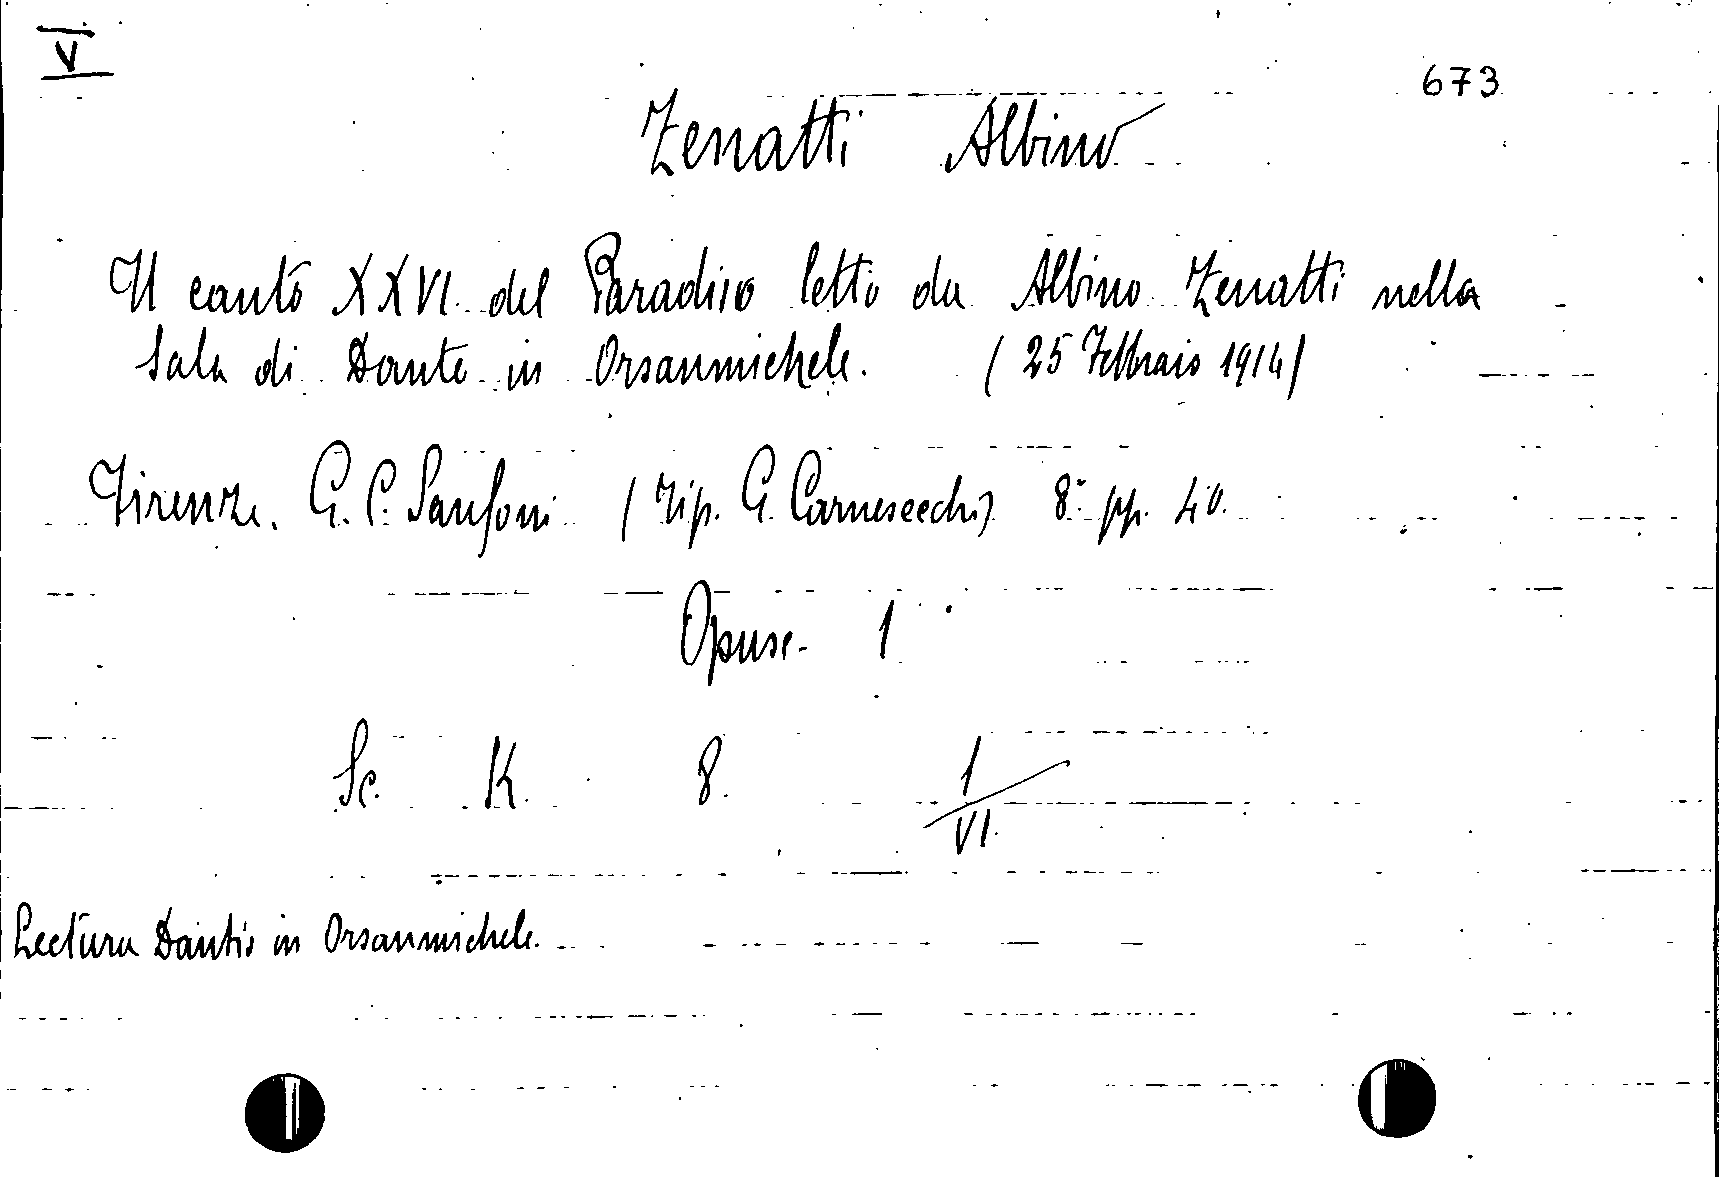 V
673
Zenatti Albino
Il canto XXVI. del Paradiso letto da Albino Zenatti nella
Sala di Dante in Orsanmichele. (25 Febbraio 1914)
Firenze. G. C. Sansoni (Tip. G. Carnesecchi) 8° pp. 40.
Opusc. 1
Sc. K. 8. 1/VI.
Lectura Dantis in Orsanmichele.